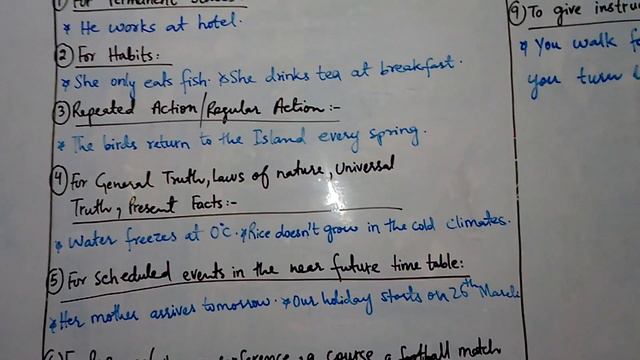 ① For Permanent
* He works at hotel.
② For Habits:
* She only eats fish. * She drinks tea at breakfast.
③ Repeated Action/Regular Action:-
* The birds return to the Island every spring.
④ For General Truth, Laws of nature, Universal
Truth, Present Facts:-
* Water freezes at 0°C. * Rice doesn't grow in the cold climates.
⑤ For scheduled events in the near future time table:
* Her mother arrives tomorrow. * Our holiday starts on 26th March
a course a football match
⑨ To give
* You walk
you turn